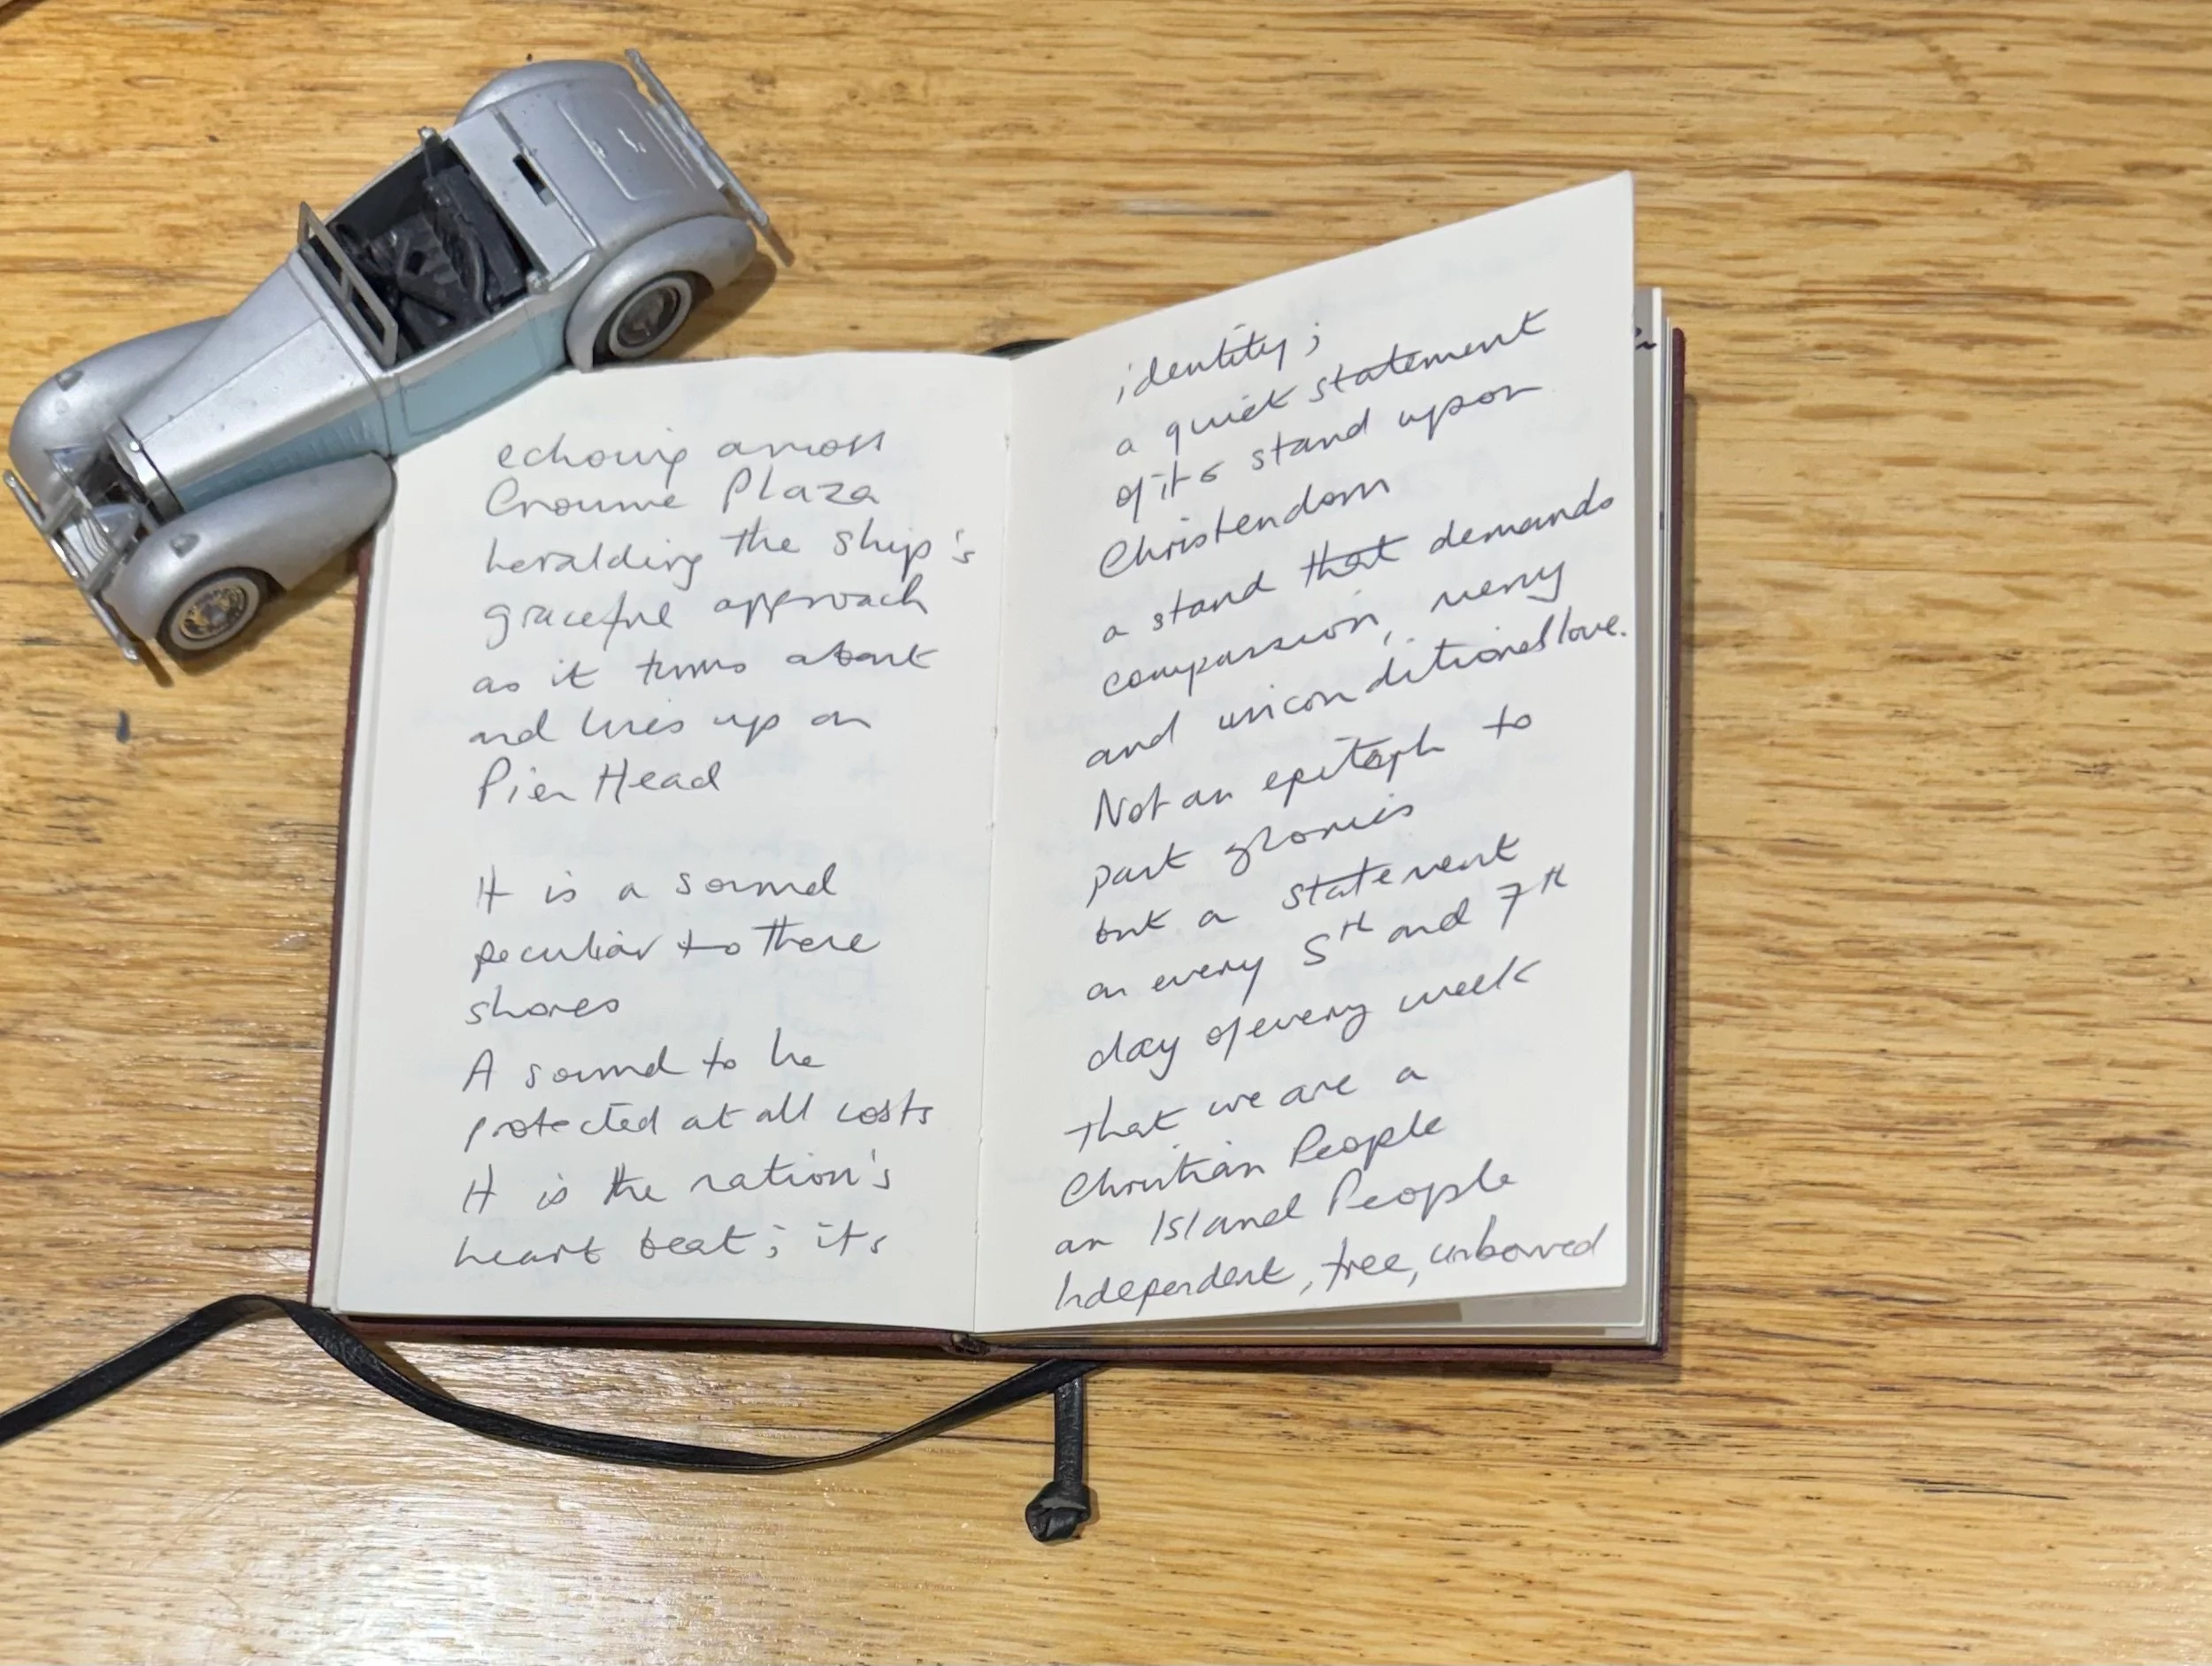 echoing across
Crowne Plaza
heralding the ship's
graceful approach
as it turns about
and lines up on
Pier Head
It is a sound
peculiar to these
shores
A sound to be
protected at all costs
It is the nation's
heart beat; its
identity;
a quiet statement
of its stand upon
Christendom
a stand that demands
compassion, mercy
and unconditional love.
Not an epitaph to
past glories
but a statement
on every 5th and 7th
day of every week
that we are a
Christian People
an Island People
Independent, free, unbowed